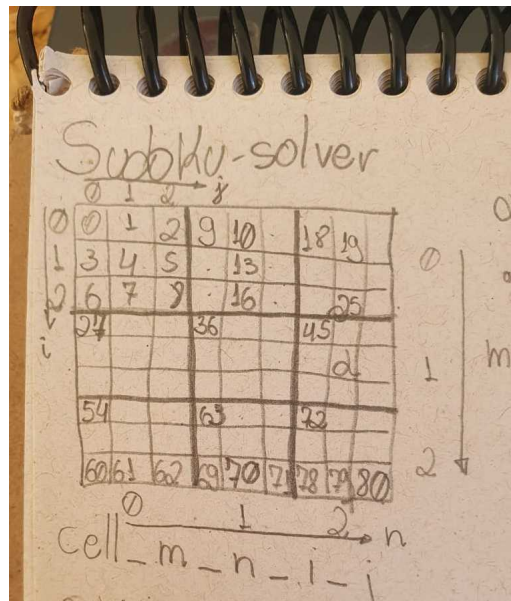 Sudoku-solver
0 1 2 j
0 0 1 2 9 10 . 18 19 0
1 3 4 5 . 13
2 6 7 8 . 16 25
27 36 45
i
d 1
54 63 72
2
60 61 62 69 70 71 78 79 80
0 1 2 n
cell_m_n_i_j
m